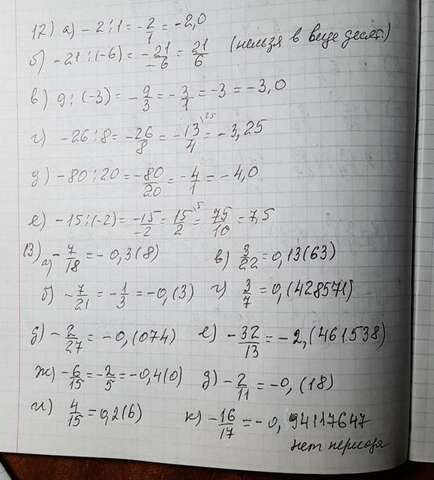 12) а) -2:1 = -2/1 = -2,0
б) -21:(-6) = -21/-6 = 21/6 (нельзя в виде десят.)
в) 9:(-3) = -9/3 = -3/1 = -3 = -3,0
г) -26:8 = -26/8 = -13/4 \25 = -3,25
д) -80:20 = -80/20 = -4/1 = -4,0
е) -15:(-2) = -15/-2 = 15/2 \5 = 75/10 = 7,5
13) а) -7/18 = -0,3(8) в) 3/22 = 0,13(63)
б) -7/21 = -1/3 = -0,(3) г) 3/7 = 0,(428571)
д) -2/27 = -0,(074) е) -32/13 = -2,(461538)
ж) -6/15 = -2/5 = -0,4(0) д) -2/11 = -0,(18)
и) 4/15 = 0,2(6) к) -16/17 = -0,94117647
нет периода